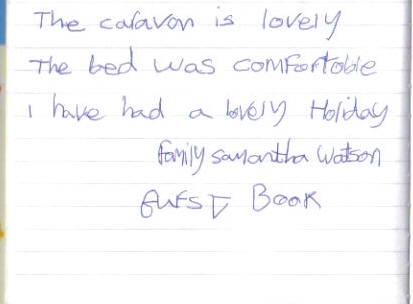 The caravan is lovely
The bed was comfortable
I have had a lovely Holiday
family samantha Watson
guest Book